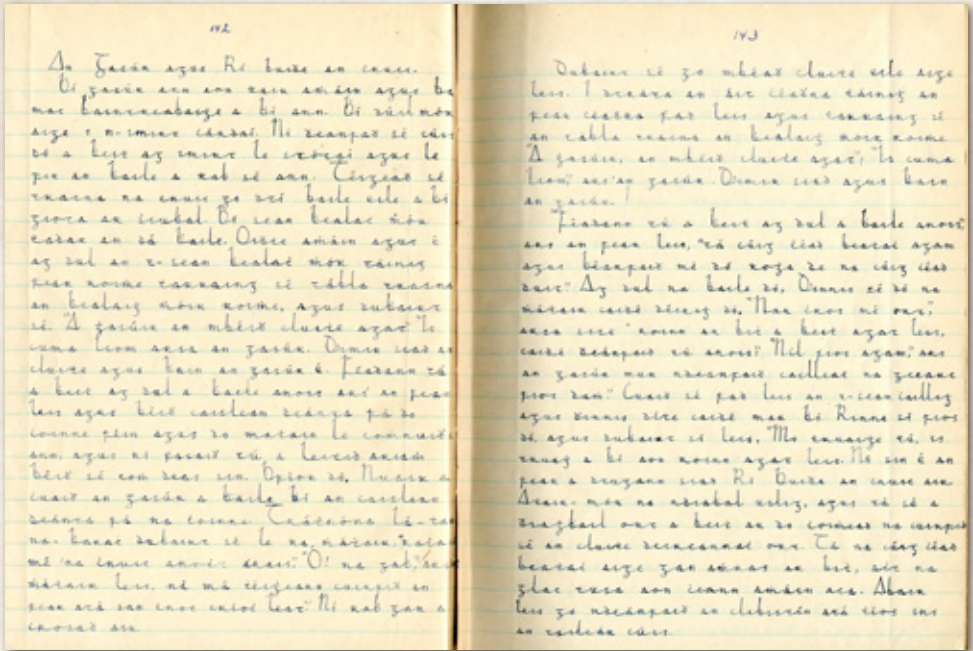 142
An Gasún agus Rí buidhe an cnuic.
Bí gasún ann aon uair amháin agus ba
mac baintreabaige a bí ann. Bí dúil mór
aige i n-imirt cárdaí. Ní deanfad sé cúis
dó a beit ag imirt le
fir an baile a rab sé ann. Téigead sé
trasna na cnuic go dtí baile eile a bí
giota ar siubal. Bí sean bealac mór
eadar an dá baile. Oidce amáin agus é
ag dul an t-sean bealac mór táinig
fear roime tarraing sé tábla trasna
an bealaig móir roime, agus dubairt
sé. "A gasúin an mbéid cluice agat" "Is
cuma liom arsa an gasún. D'imir siad an
cluice agus bain an gasún é. Féadann tú
a beit ag dul a baile anois ars' an fear
leis agus béid caislean déanta fá do
coinne féin agus do matair le comnuidhe
ann, agus ní facaid tú, a leitéid ariam
béid sé com deas sin. B'fíor dó. Nuair a
cuaid an gasún a baile bí an caislean
déanta fá na coinne. Trátnóna lá-tar
na-barac dubairt sé le na mátair,
mé 'na cnuic anocht arais." "O! na gab," arsa
mátair leis, nó má téigeann cuirfid an
fear atá san cnoc
143
Dubairt sé go mbéad cluice eile aige
leis. I dtráta an áit céadna táinig an
fear céadna fad leis agus tarraing sé
an tábla trasna an bealaig móir roime
"A gasúin, an mbéid cluice agat"; "Is cuma
liom," ars' an gasún. D'imir siad agus bain
an gasún.
"Féadann tú a beit ag dul a baile anois"
ars an fear leis, "tá cúig céad beatac agam
agus béarfaid mé do roga de na cúig céad
duit." Ag dul na baile dó, D'innis sé dó na
mátair caidé déirig dó, "Nar cros mé ort,"
arsa sise roime an bit a beit agat leis,
caidé déanfaid tú anois?" "Níl fios agam," ars
an gasún mun ndeanfaid cailleac na gcearc
fios dom." Cuaid sé fad leis an t-sean caillig
agus d'innis díte caidé mar bí. Rinne sí fios
dó, agus dubairt sí leis, "Mo truaige tú, is
truag a bí aon roime agat leis. Nó sin é an
fear a dtugann siad Rí Buidhe an cnuic air
mór na ndiabal uilig, agus tá sé a
dtagbáil ort a beit ar do coimead na
sé an cluice deireannac ort. Tá na cúig céad
beatac aige gan amras ar bit, ac na
glac tusa aon ceann amáin aca. Abair
leis go ndéanfaid an clibistín atá tíos ins
an caisleán cúis.